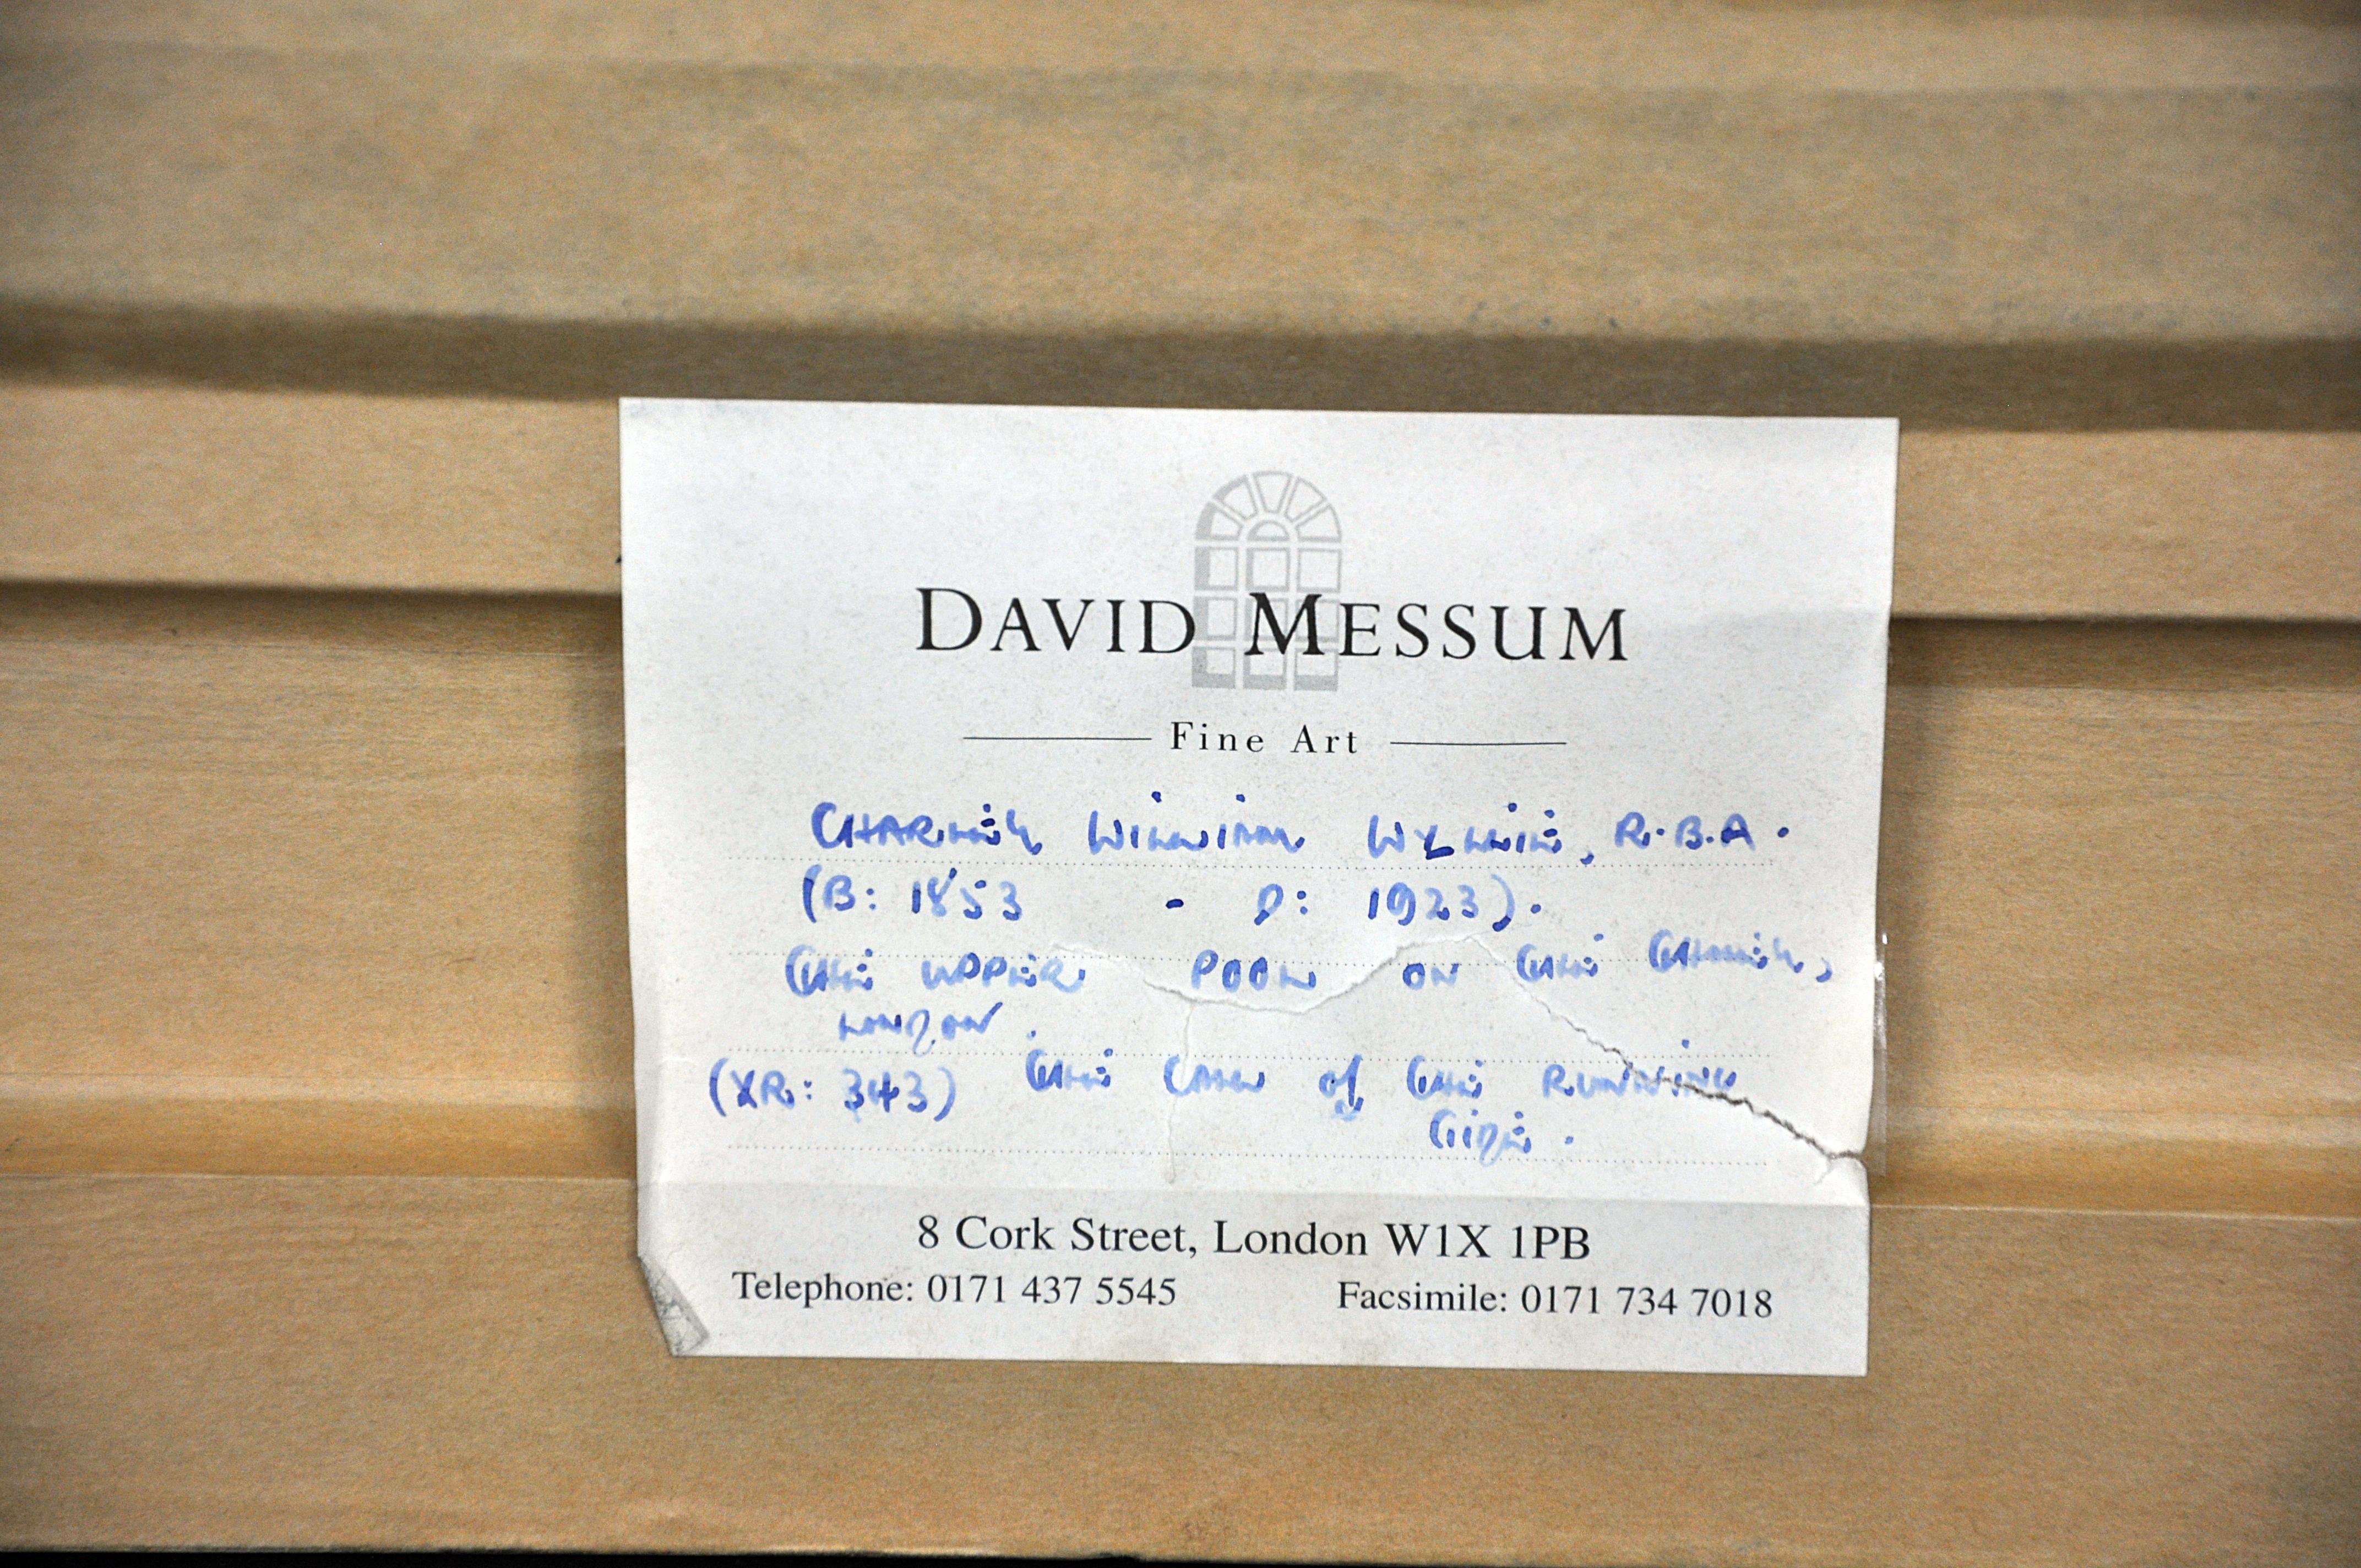 DAVID MESSUM
Fine Art
CHARLES WILLIAM WYLLIE, R.B.A.
(B: 1853 - D: 1923).
THE UPPER POOL ON THE THAMES,
LONDON.
(XR: 343) THE CALM of THE RUNNING
TIDE.
8 Cork Street, London W1X 1PB
Telephone: 0171 437 5545 Facsimile: 0171 734 7018